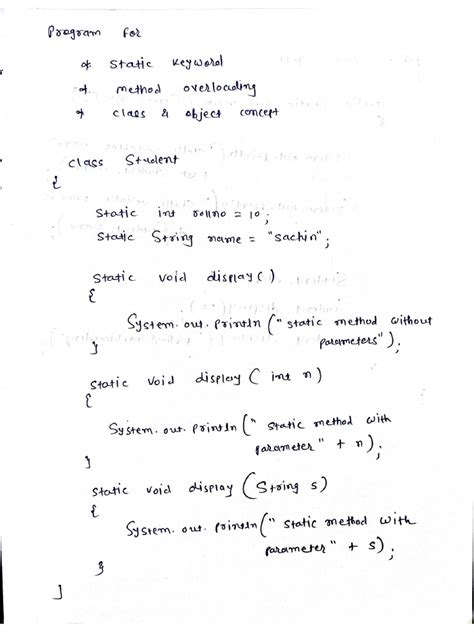 Program for
* Static Keyword
* method overloading
* class & object concept
class Student
{
Static int rollno = 10;
Static String name = "sachin";
Static void display()
{
System.out.println("static method without
parameters");
}
Static void display(int n)
{
System.out.println("static method with
parameter" + n);
}
Static void display(String s)
{
System.out.println("static method with
parameter" + s);
}
}